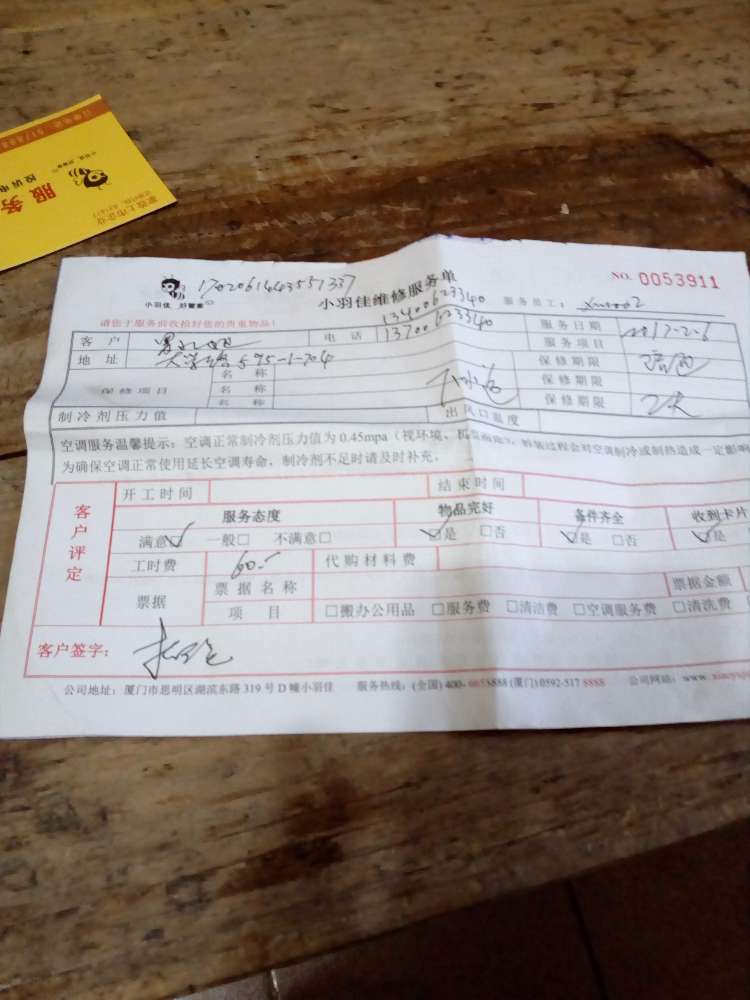 服务
小羽佳 好管家
1702061443551337
小羽佳维修服务单
NO. 0053911
13400623340
请您于服务前收拾好您的贵重物品!
服务员工: xm1002
客户
电话 13700623340
服务日期 2017-2-6
地址 大学路 595-1-704
服务项目
名称
保修期限
保修项目 名称
保修期限
名称
保修期限 2天
制冷剂压力值
出风口温度
空调服务温馨提示:空调正常制冷剂压力值为 0.45mpa(视环境、
拆装过程会对空调制冷或制热造成一定影响
为确保空调正常使用延长空调寿命,制冷剂不足时请及时补充。
客户评定
开工时间 结束时间
服务态度 物品完好 条件齐全 收到卡片
满意☑ 一般□ 不满意□ ☑是 □否 ☑是 □否 ☑是
工时费 60.- 代购材料费
票据 票据名称 票据金额
项目 □搬办公用品 □服务费 □清洁费 □空调服务费 □清洗费
客户签字:
公司地址:厦门市思明区湖滨东路 319 号 D 幢小羽佳 服务热线:(全国) 400-6658888 (厦门) 0592-517 8888 公司网站:www.